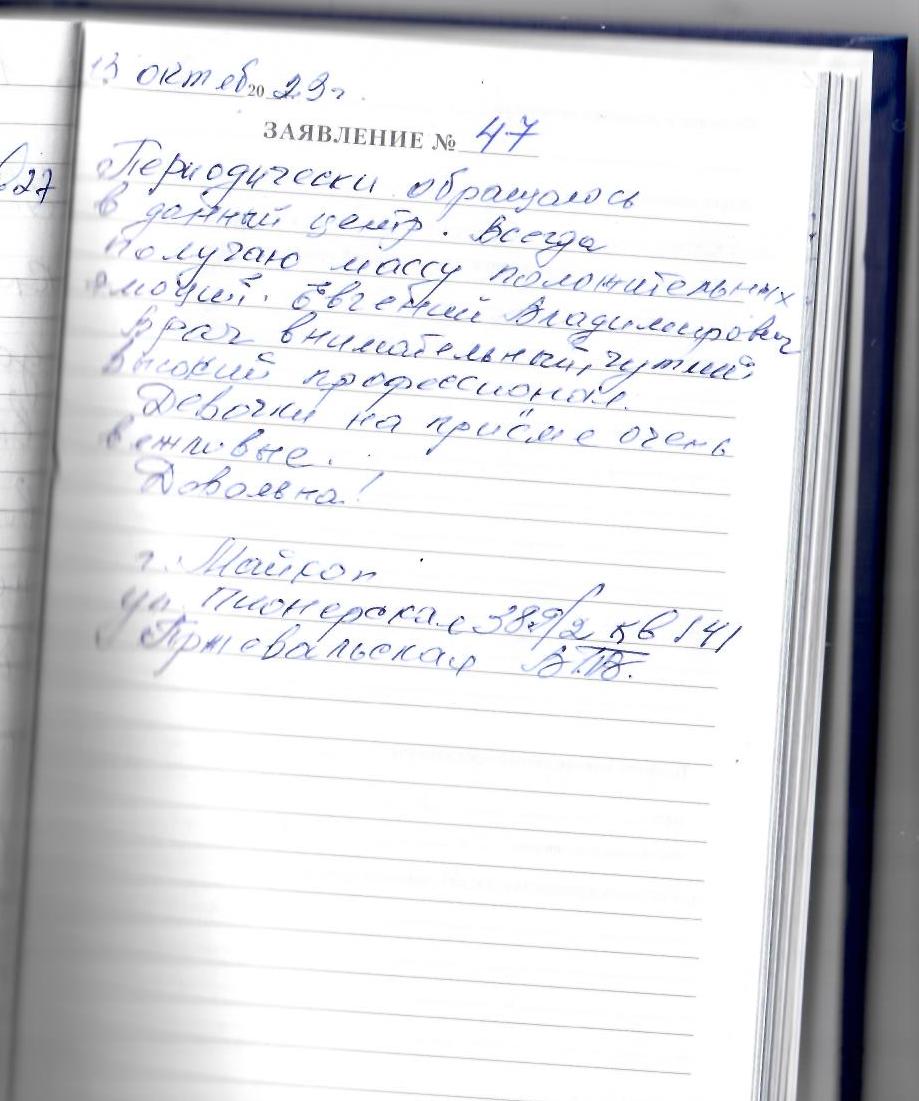 13 октяб 2023 г.
ЗАЯВЛЕНИЕ № 47
Периодически обращаюсь
в данный центр. Всегда
получаю массу положительных
эмоций. Евгений Владимирович
врач внимательный, чуткий
высокий профессионал.
Девочки на приёме очень
вежливые.
Довольна!
г. Майкоп
ул. Пионерская 389/2 кв 141
Пржевальская
27